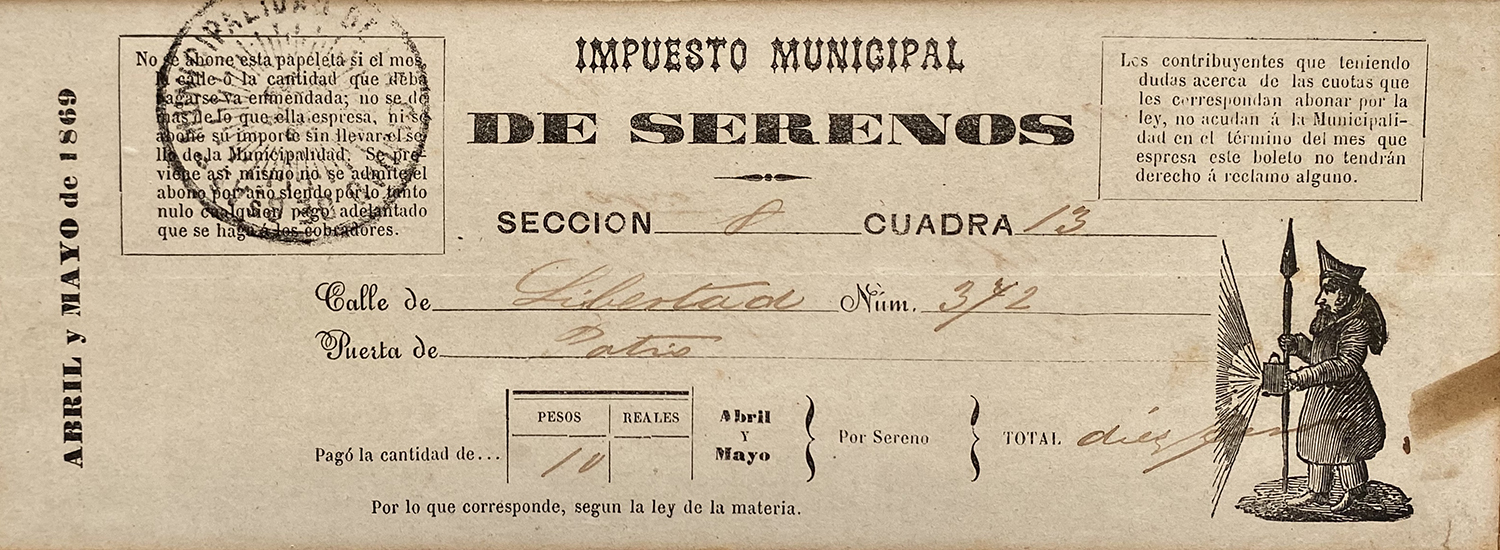 ABRIL y MAYO de 1869
MUNICIPALIDAD DE
No se abone esta papeleta si el mes,
la calle ó la cantidad que deba
pagarse va enmendada; no se dé
mas de lo que ella espresa, ni se
abone sú importe sin llevar el se-
llo de la Municipalidad. Se pre-
viene asi mismo no se admite el
abono por año siendo por lo tanto
nulo cualquier pago adelantado
que se haga á los cobradores.
IMPUESTO MUNICIPAL
DE SERENOS
Los contribuyentes que teniendo
dudas acerca de las cuotas que
les correspondan abonar por la
ley, no acudan á la Municipali-
dad en el término del mes que
espresa este boleto no tendrán
derecho á reclamo alguno.
SECCION 8 CUADRA 13
Calle de Libertad Núm. 372
Puerta de Patio
PESOS REALES
Abril
Y
Mayo
Pagó la cantidad de... 10
Por Sereno
TOTAL diez
Por lo que corresponde, segun la ley de la materia.